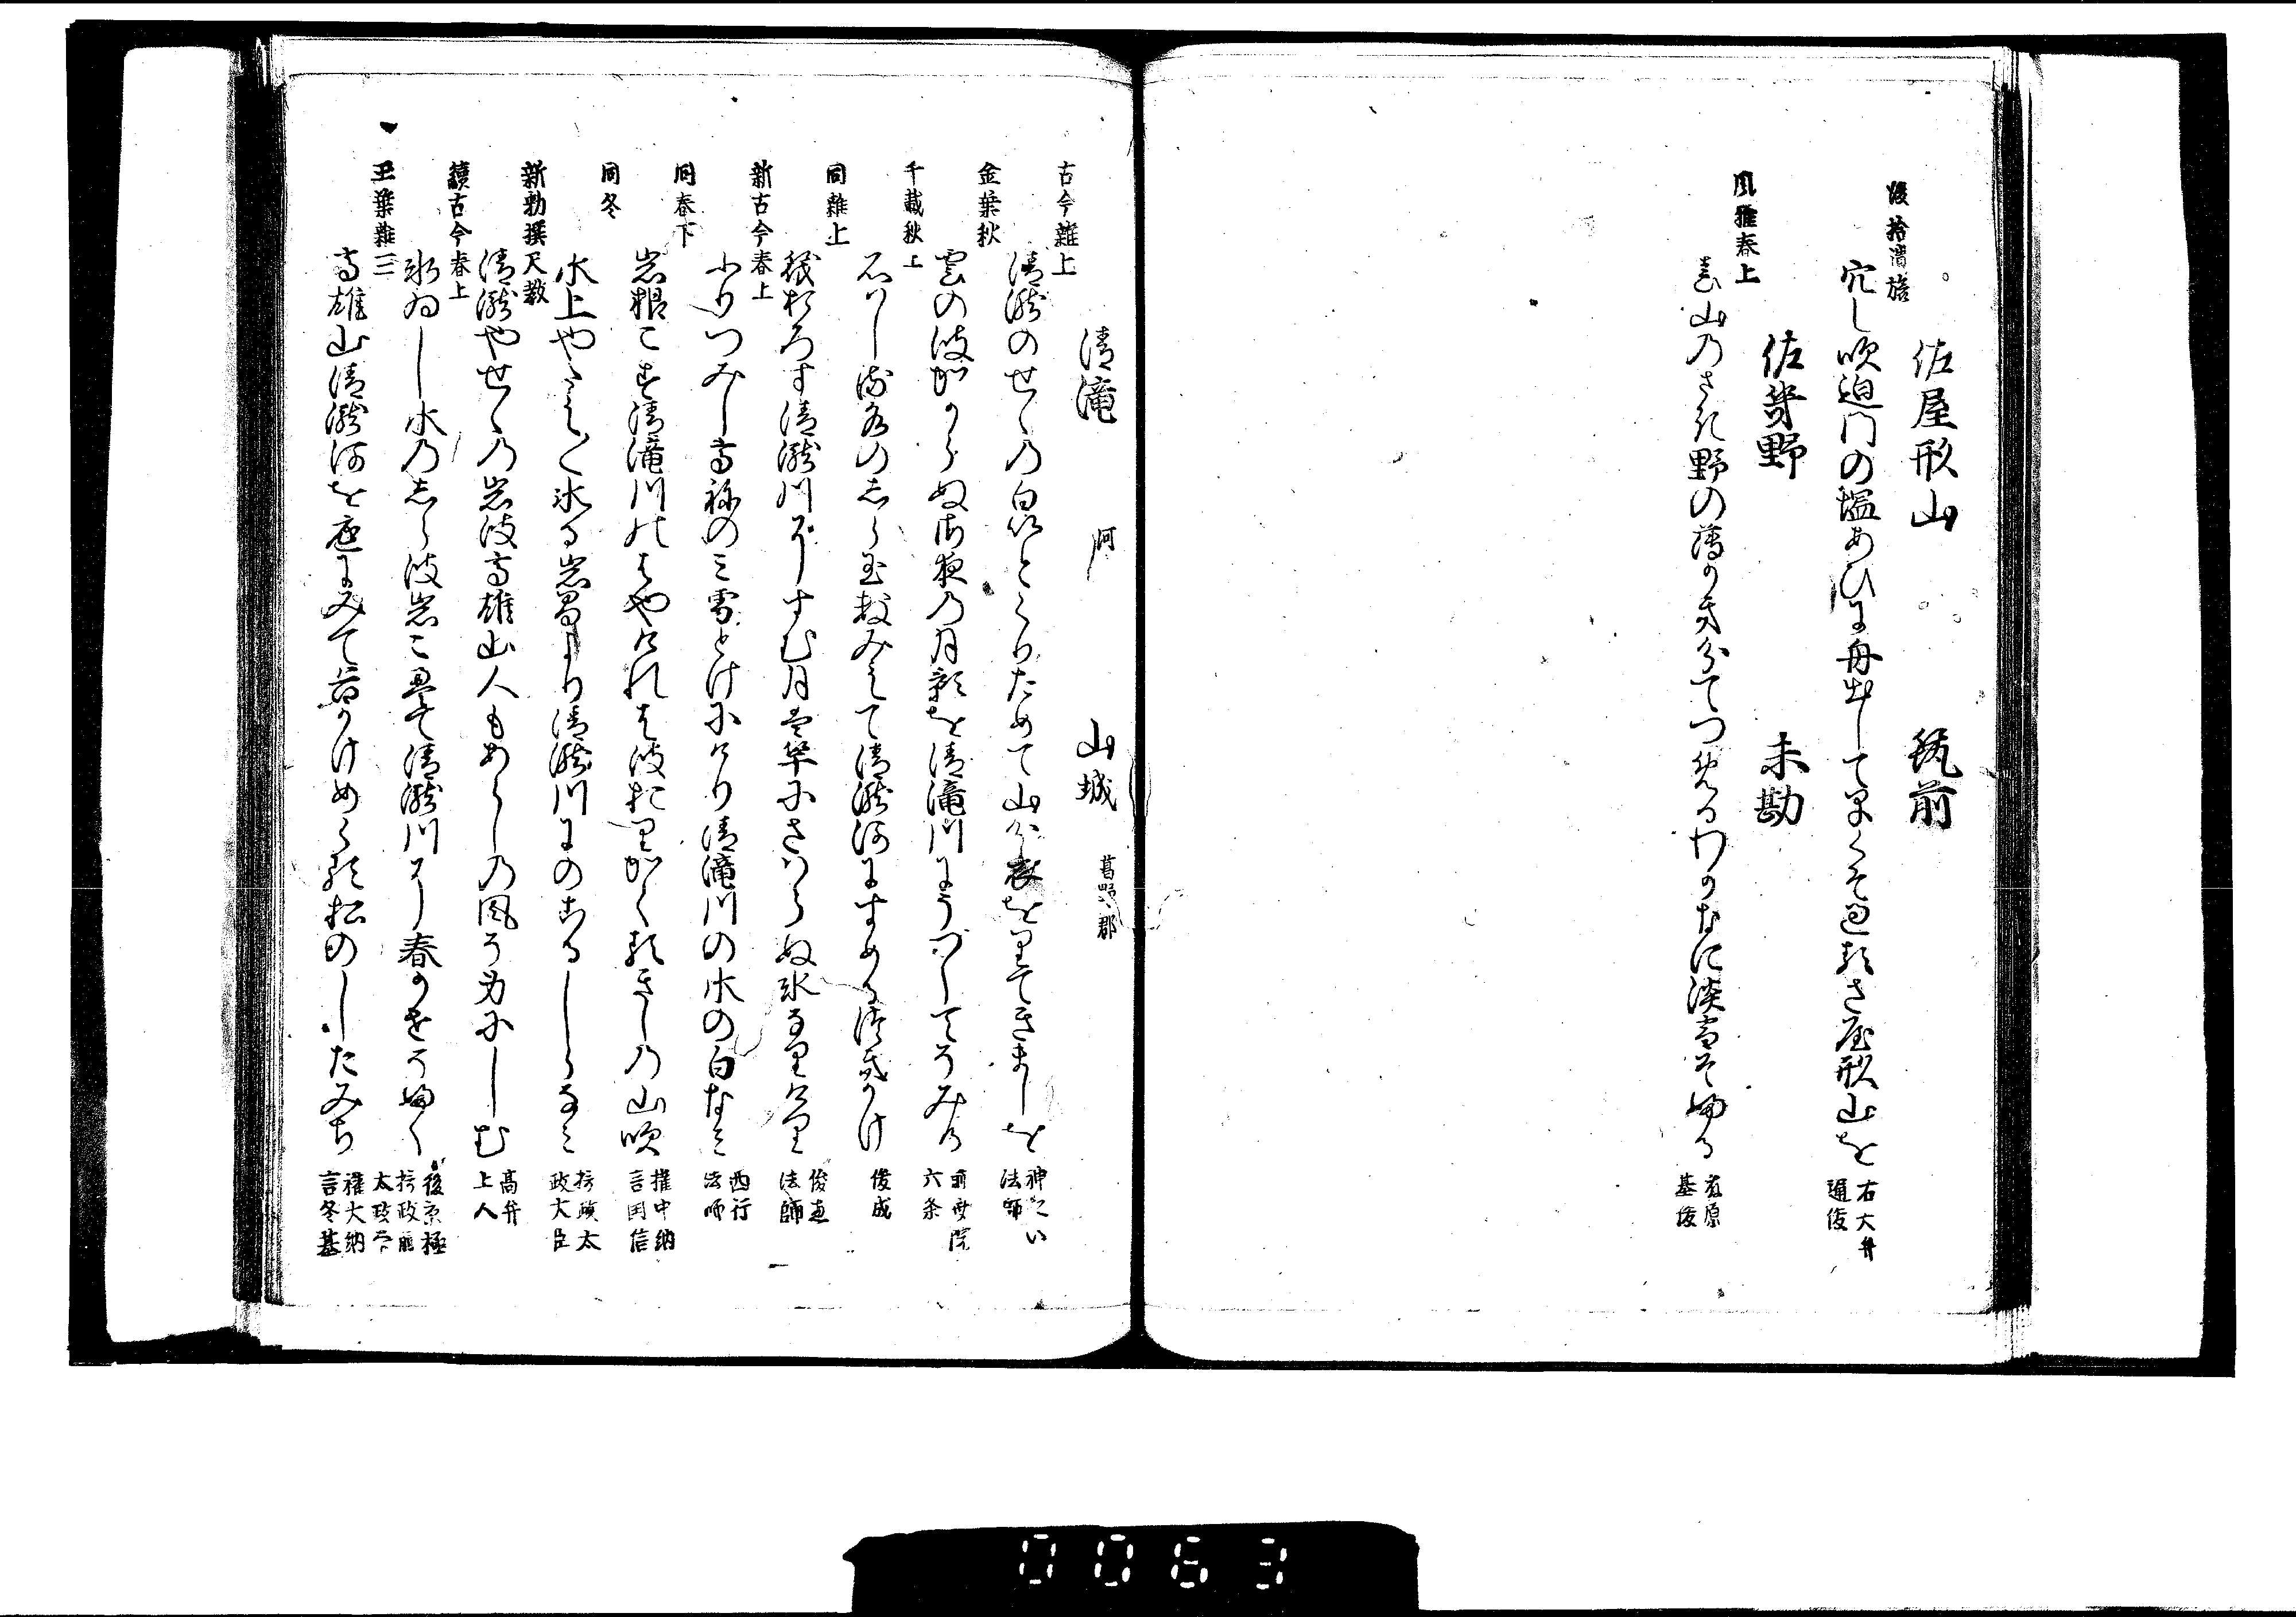 佐屋形山 筑前
後拾遺旅
穴し吹迫門の塩あひに舟出してはやくそ過るさ屋形山を 右大弁通俊
佐幾野 未勘
風雅春上
春山乃さき野の薄かき分てつめるわかなに淡雪そふる 藤原基俊
清滝 河 山城 葛野郡
古今雑上
清瀧のせゝ乃白いとくりためて山分衣をりてきましを 神たい法師
金葉秋
雲の波かゝらぬさ夜乃月影を清滝川にうつしてそみる 前斎院六条
千載秋上
石はしる水の志ら玉数みえて清瀧河にすめる月かけ 俊成
同雑上
筏おろす清瀧川にすむ月は棹にさはらぬ氷なりけり 俊恵法師
新古今春上
ふりつみし高祢のミ雪とけにけり清滝川の水の白なミ 西行法師
同春下
岩根こす清滝川のはやけれは波おりかくるきしの山吹 権中納言国信
同冬
水上やたえ〳〵氷る岩間より清瀧川にのこるしらなミ 摂政太政大臣
新勅撰尺教
清瀧やせゝ乃岩波高雄山人もあらしの風そ身にしむ 高弁上人
續古今春上
氷ゐし水乃志ら波岩こえて清瀧川に春かせそ吹く 後京極摂政前太政大臣
玉葉雑三
高雄山清瀧河を庭にみて苔かけめくる松のしたみち 権大納言冬基
0063